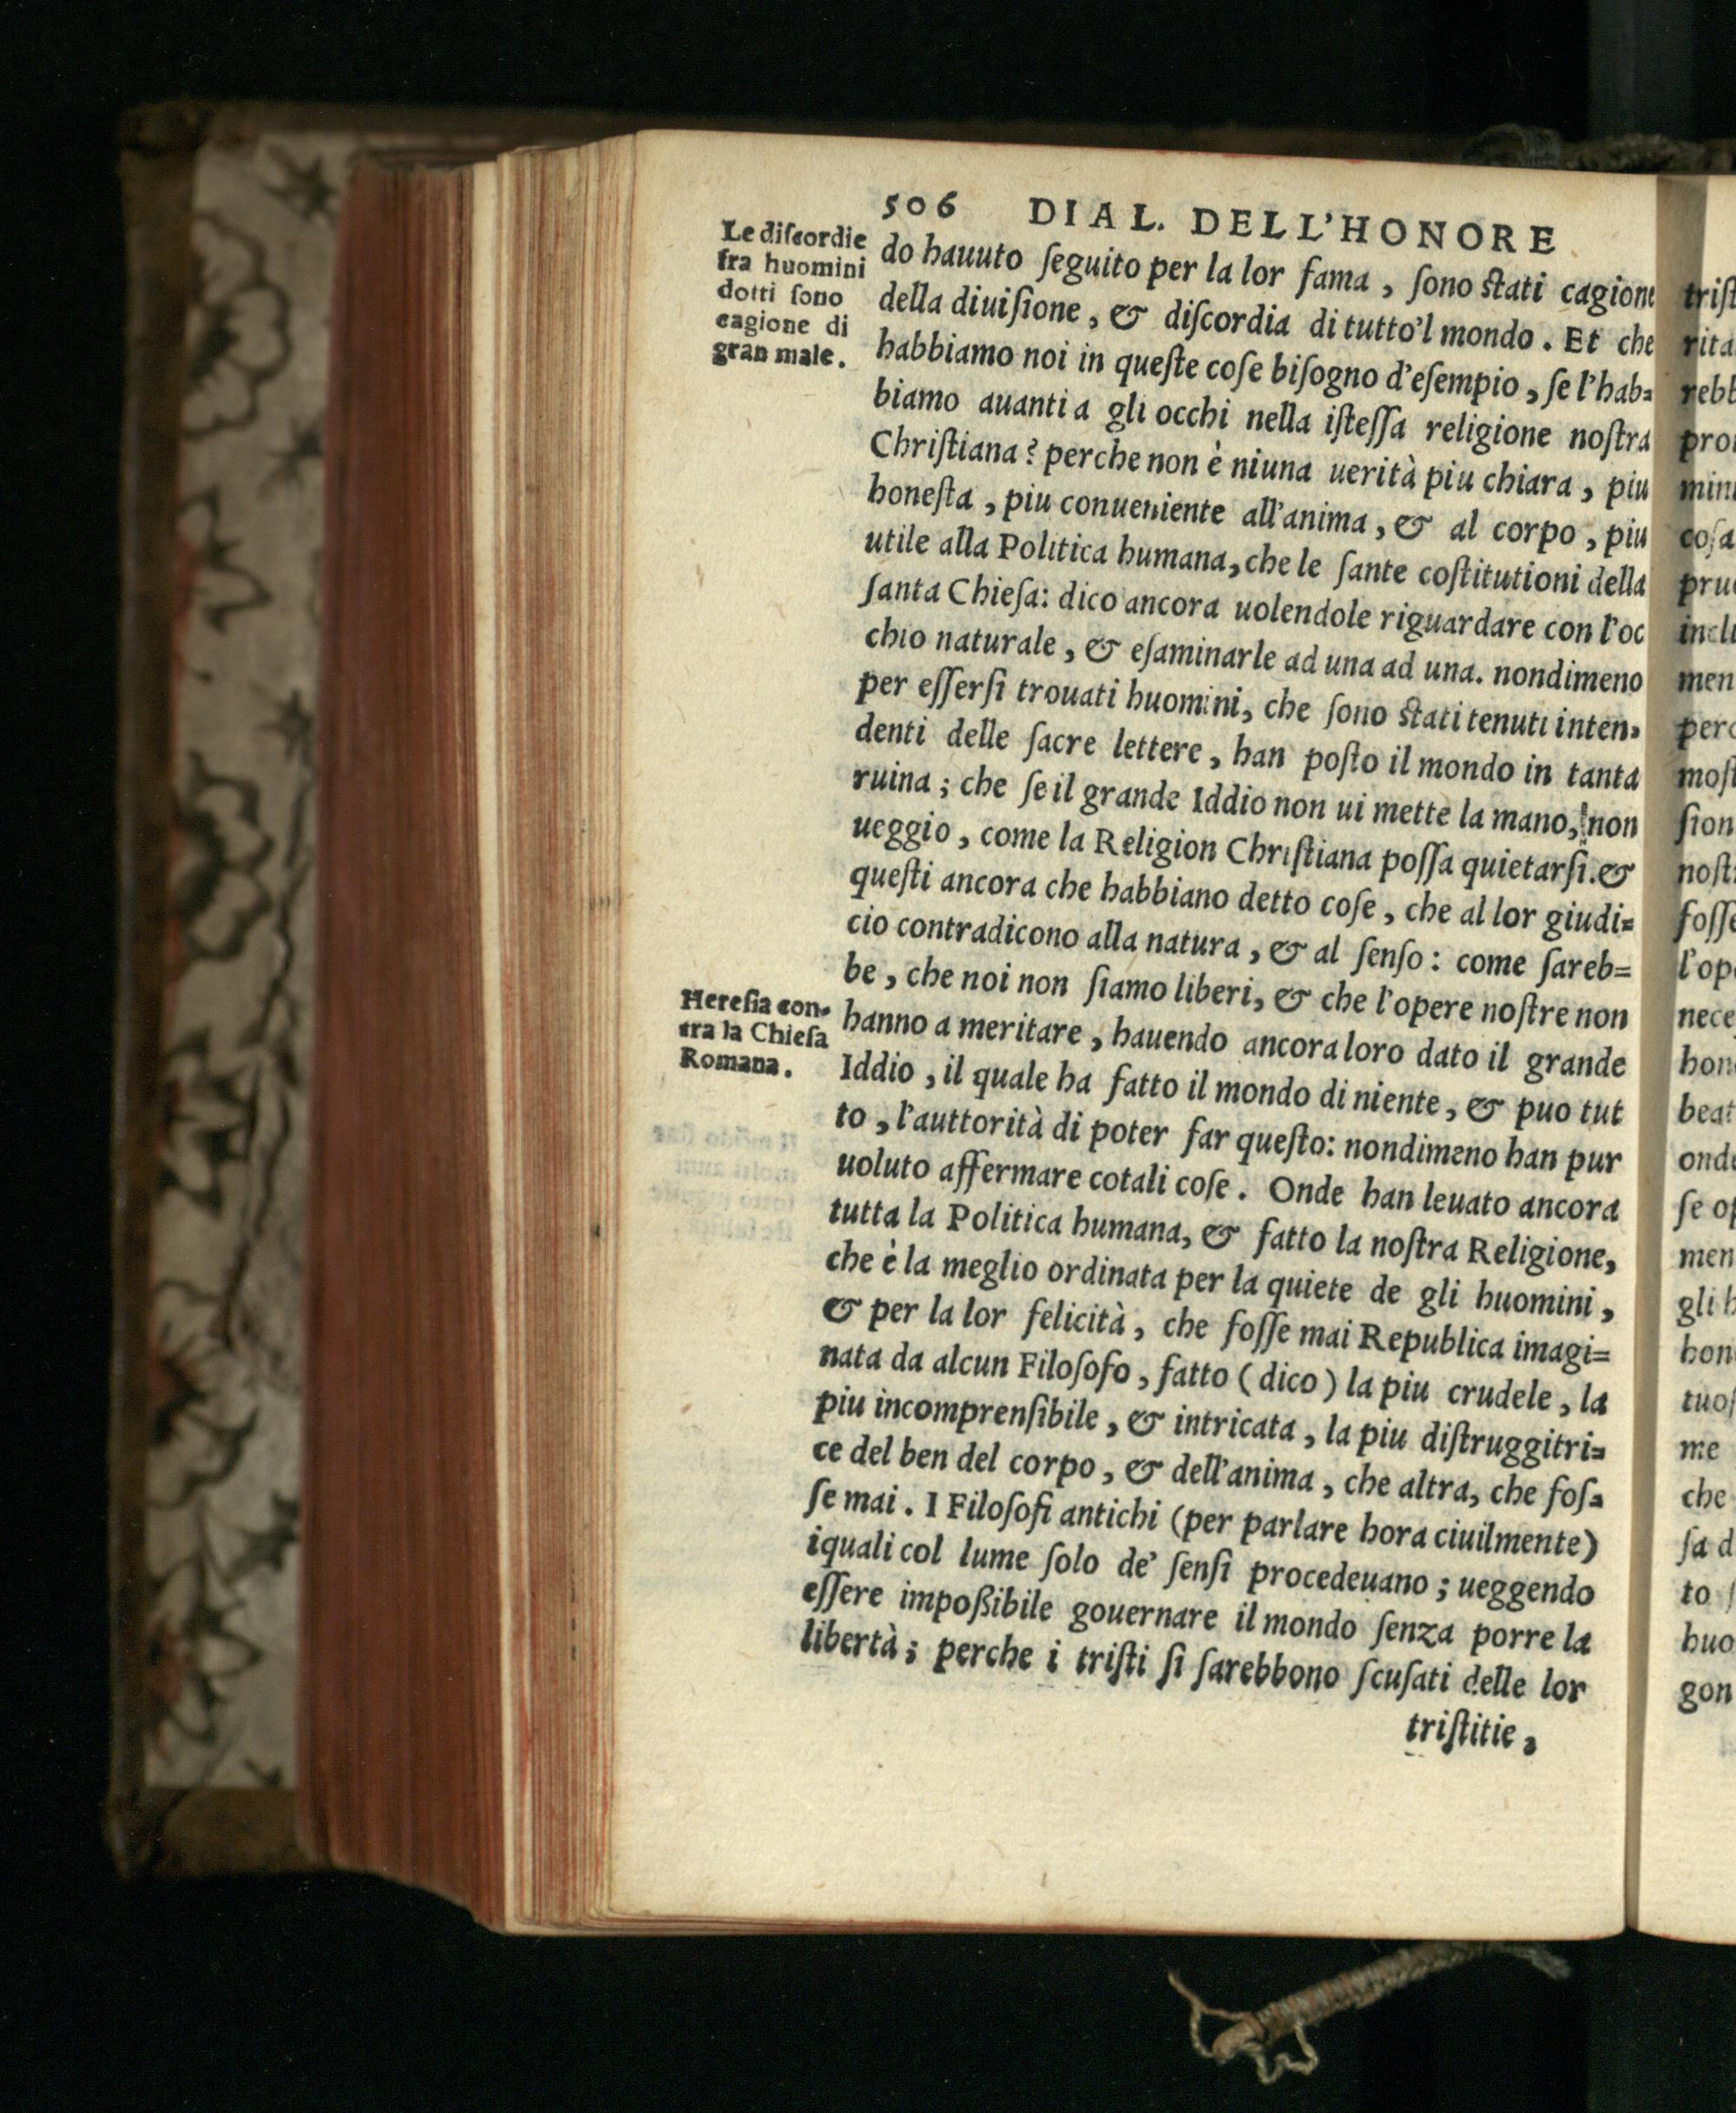 506 DIAL. DELL'HONORE
Le diſcordie
fra huomini
dotti ſono
cagione di
gran male.
do hauuto ſeguito per la lor fama, ſono ſtati cagione
della diuiſione, & diſcordia di tutto'l mondo. Et che
habbiamo noi in queſte coſe biſogno d'eſempio, ſe l'hab=
biamo auanti a gli occhi nella iſteſſa religione noſtra
Chriſtiana? perche non è niuna uerità piu chiara, piu
honeſta, piu conueniente all'anima, & al corpo, piu
utile alla Politica humana, che le ſante coſtitutioni della
ſanta Chieſa: dico ancora uolendole riguardare con l'oc
chio naturale, & eſaminarle ad una ad una. nondimeno
per eſſerſi trouati huomini, che ſono ſtati tenuti inten=
denti delle ſacre lettere, han poſto il mondo in tanta
ruina; che ſe il grande Iddio non ui mette la mano, non
ueggio, come la Religion Chriſtiana poſſa quietarſi. &
queſti ancora che habbiano detto coſe, che al lor giudi=
cio contradicono alla natura, & al ſenſo: come ſareb=
be, che noi non ſiamo liberi, & che l'opere noſtre non
Hereſia con=
tra la Chieſa
Romana.
hanno a meritare, hauendo ancora loro dato il grande
Iddio, il quale ha fatto il mondo di niente, & puo tut
to, l'auttorità di poter far queſto: nondimeno han pur
uoluto affermare cotali coſe. Onde han leuato ancora
tutta la Politica humana, & fatto la noſtra Religione,
che è la meglio ordinata per la quiete de gli huomini,
& per la lor felicità, che foſſe mai Republica imagi=
nata da alcun Filoſofo, fatto (dico) la piu crudele, la
piu incomprenſibile, & intricata, la piu diſtruggitri=
ce del ben del corpo, & dell'anima, che altra, che foſ=
ſe mai. I Filoſofi antichi (per parlare hora ciuilmente)
iquali col lume ſolo de' ſenſi procedeuano; ueggendo
eſſere impoßibile gouernare il mondo ſenza porre la
libertà; perche i triſti ſi ſarebbono ſcuſati delle lor
triſtitie,